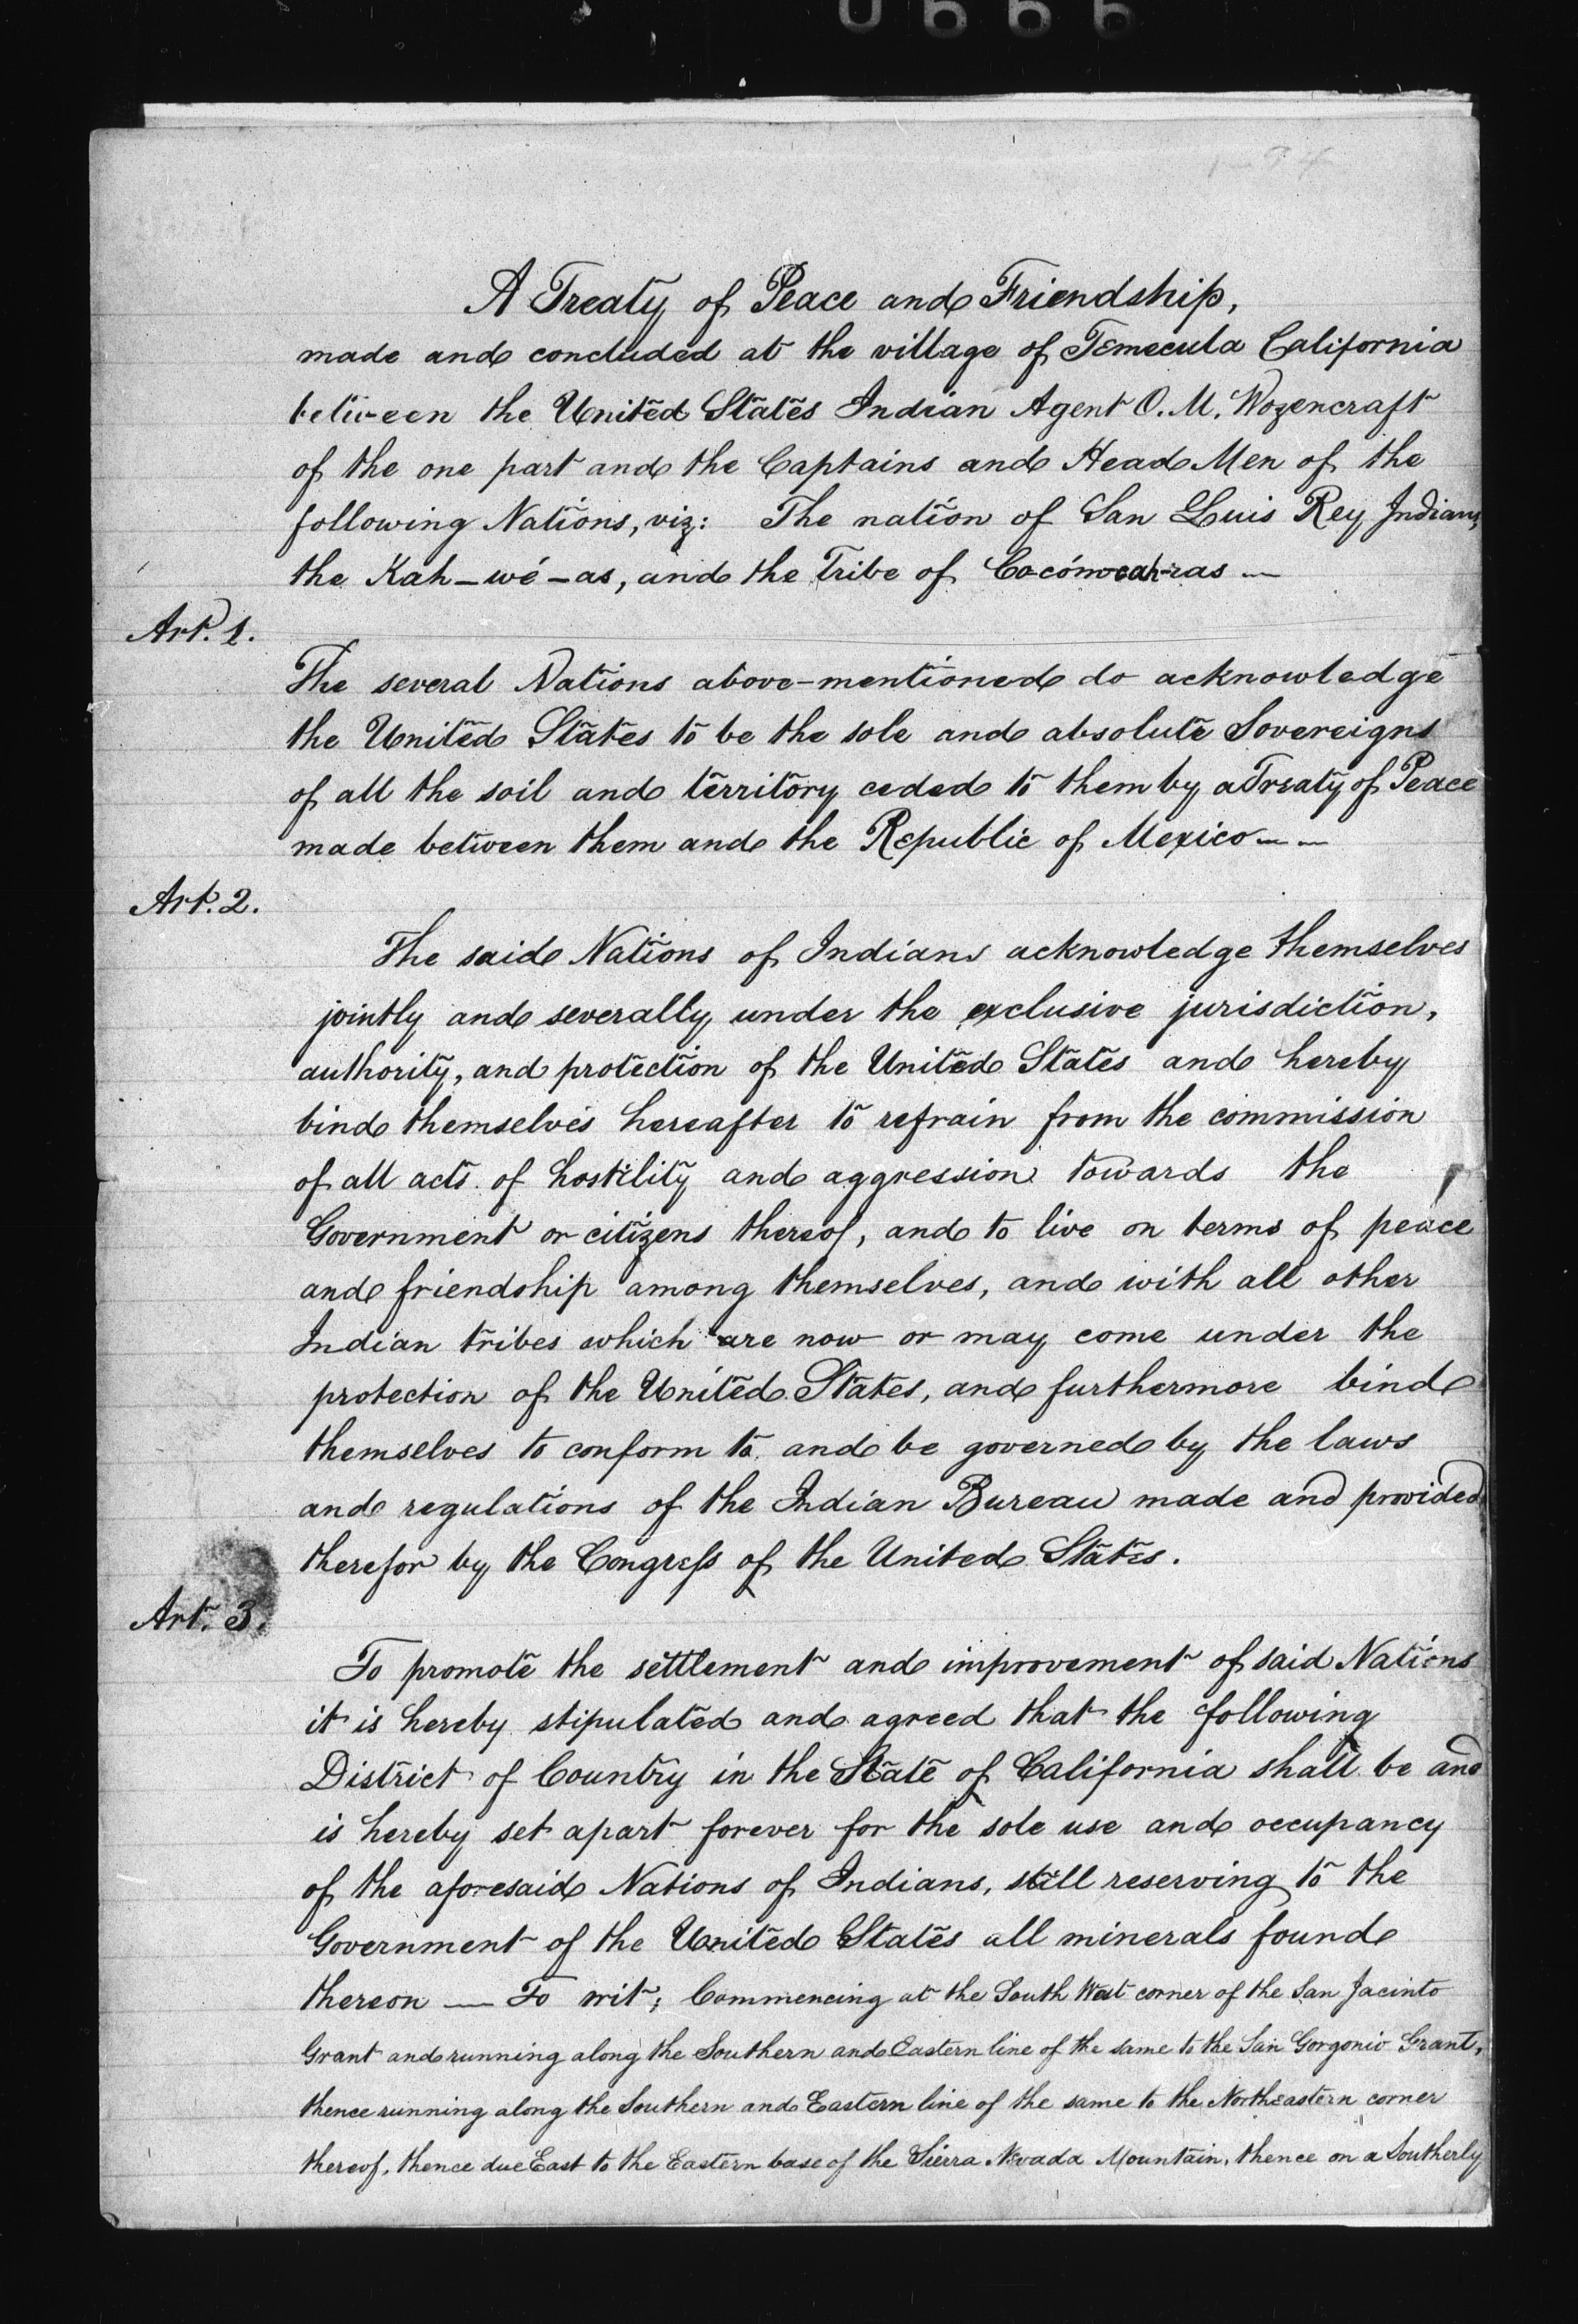 A Treaty of Peace and Friendship,
made and concluded at the village of Temecula California
between the United States Indian Agent O. M. Wozencraft
of the one part and the Captains and Head Men of the
following Nations, viz: The nation of San Luis Rey Indians,
the Kah-wé-as, and the Tribe of Co-cóm-cah-ras —
Art. 1.
The several Nations above-mentioned do acknowledge
the United States to be the sole and absolute Sovereigns
of all the soil and territory ceded to them by a Treaty of Peace
made between them and the Republic of Mexico — —
Art. 2.
The said Nations of Indians acknowledge themselves
jointly and severally under the exclusive jurisdiction,
authority, and protection of the United States and hereby
bind themselves hereafter to refrain from the commission
of all acts of hostility and aggression towards the
Government or citizens thereof, and to live on terms of peace
and friendship among themselves, and with all other
Indian tribes which are now or may come under the
protection of the United States, and furthermore bind
themselves to conform to and be governed by the laws
and regulations of the Indian Bureau made and provided
therefor by the Congress of the United States.
Art. 3.
To promote the settlement and improvement of said Nations
it is hereby stipulated and agreed that the following
District of Country in the State of California shall be and
is hereby set apart forever for the sole use and occupancy
of the aforesaid Nations of Indians, still reserving to the
Government of the United States all minerals found
thereon — To wit; Commencing at the South West corner of the San Jacinto
Grant and running along the Southern and Eastern line of the same to the San Gorgonio Grant,
thence running along the Southern and Eastern line of the same to the Northeastern corner
thereof, thence due East to the Eastern base of the Sierra Nevada Mountain, thence on a Southerly